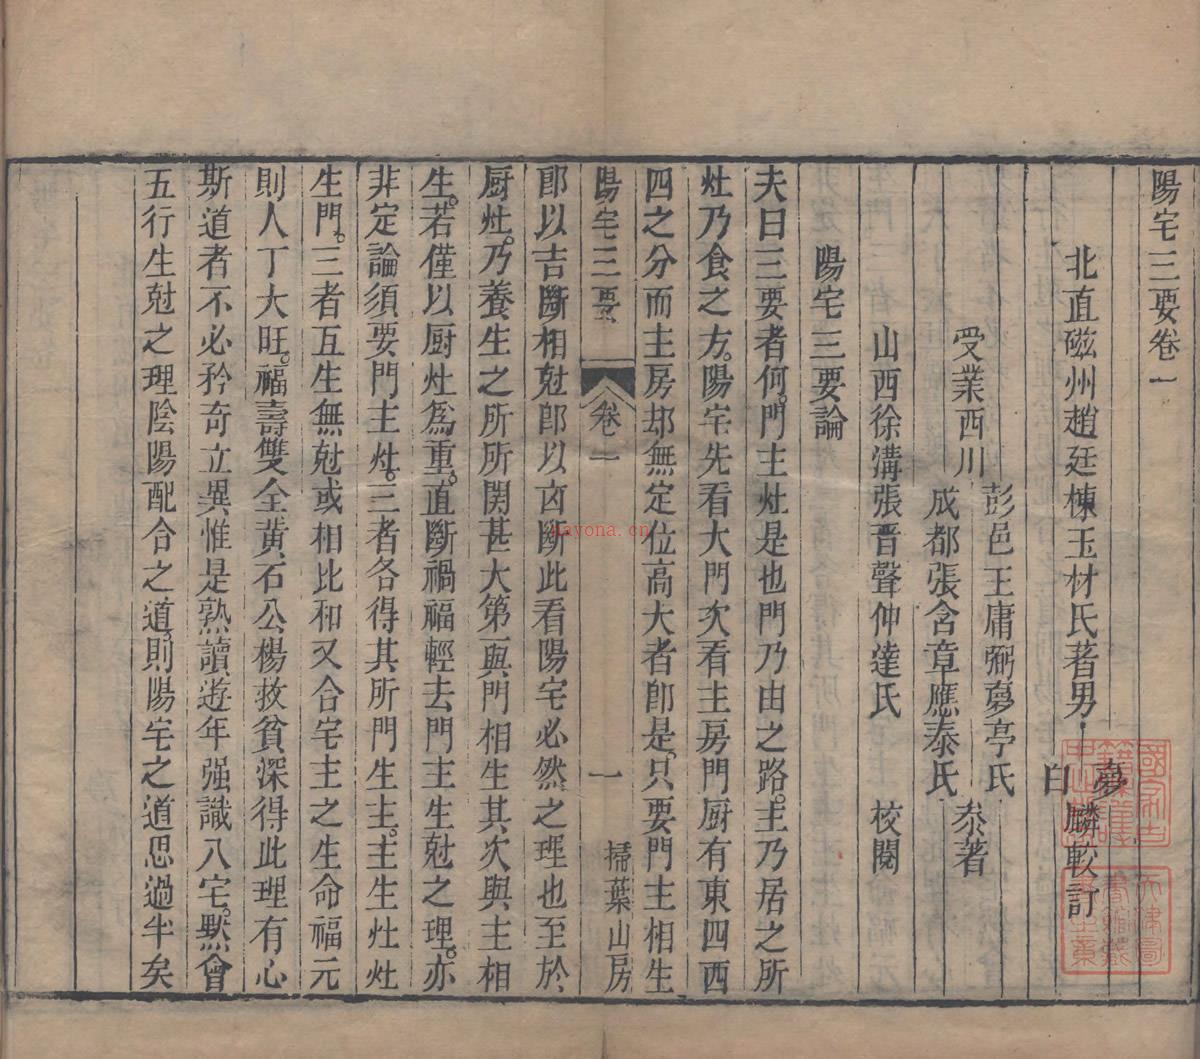 陽宅三要卷一
北直磁州趙廷棟玉材氏著男
夢
白
麟較訂
受業西川
彭邑王庸弼夢亭氏
成都張含章應泰氏
叅著
山西徐溝張晋聲仲達氏
校閱
陽宅三要論
夫曰三要者何。門主灶是也門乃由之路。主乃居之所
灶乃食之方。陽宅先看大門次看主房門厨有東四西
四之分而主房却無定位高大者卽是。只要門主相生
陽宅三要
卷一
一
掃葉山房
卽以吉斷相尅卽以凶斷此看陽宅必然之理也至於
厨灶。乃養生之所所関甚大第與門相生其次與主相
生。若僅以厨灶爲重。直斷禍福輕去門主生尅之理。亦
非定論須要門主灶。三者各得其所門生主。主生灶灶
生門。三者互生無尅或相比和又合宅主之生命福元
則人丁大旺。福壽雙全黄石公楊救貧深得此理有心
斯道者不必矜奇立異惟是熟讀遊年强識八宅。默會
五行生尅之理陰陽配合之道則陽宅之道思過半矣
nayona.cn